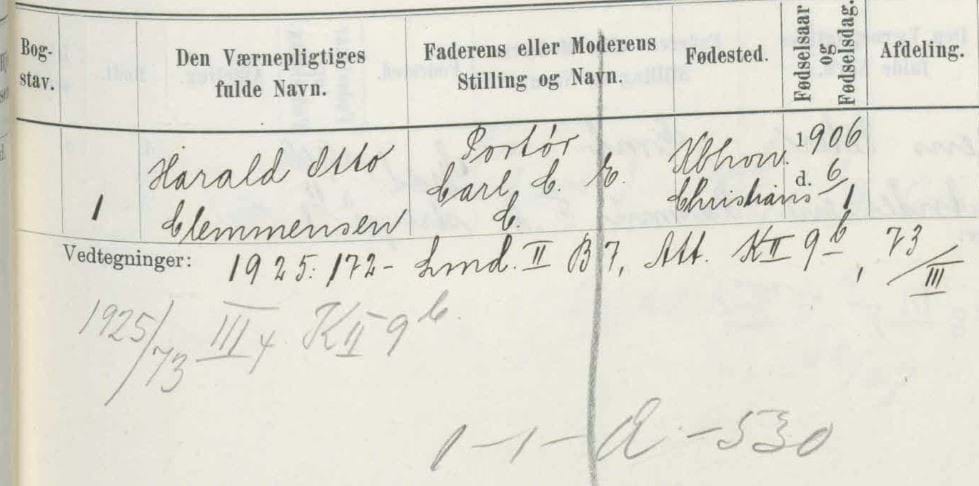 Bog-
stav.
Den Værnepligtiges
fulde Navn.
Faderens eller Moderens
Stilling og Navn.
Fødested.
Fødselsaar
og
Fødselsdag.
Afdeling.
1
Harald Otto
Clemmensen
Portør
Carl C. E.
C.
Kbhvn.
Christians
1906
d. 6/1
Vedtegninger: 1925: 172- Lmd. II B 7, Att. K II 9 b, 73/III
1925/73 III 4 K II 9 b.
1-1-A-530